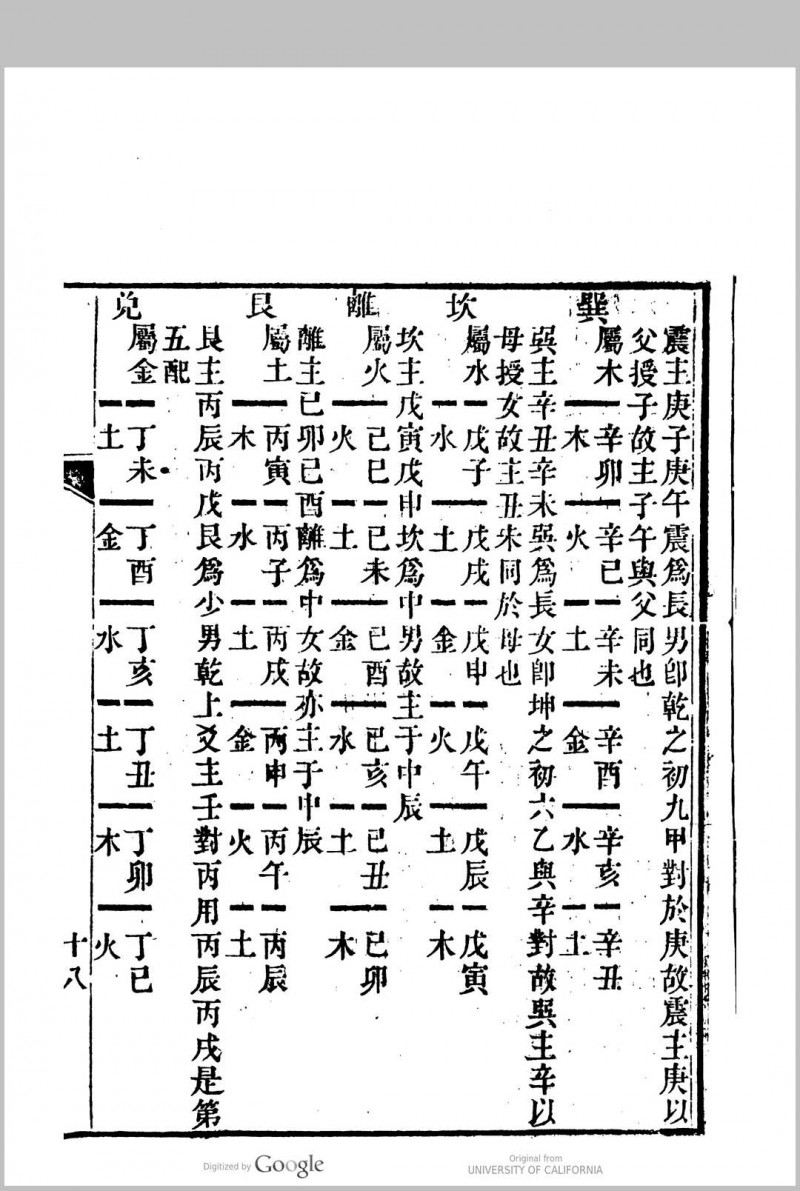 震主庚子庚午震爲長男卽乾之初九甲對於庚故震主庚以
父授子故主子午與父同也
巽
屬木 辛卯 辛巳 辛未 辛酉 辛亥 辛丑
木 火 土 金 水 土
巽主辛丑辛未巽爲長女卽坤之初六乙與辛對故巽主辛以
母授女故主丑未同於母也
坎
屬水 戊子 戊戌 戊申 戊午 戊辰 戊寅
水 土 金 火 土 木
坎主戊寅戊申坎爲中男故主于中辰
離
屬火 己巳 己未 己酉 己亥 己丑 己卯
火 土 金 水 土 木
離主己卯己酉離爲中女故亦主于中辰
艮
屬土 丙寅 丙子 丙戌 丙申 丙午 丙辰
木 水 土 金 火 土
艮主丙辰丙戌艮爲少男乾上爻主壬對丙用丙辰丙戌是第
五配
兌
屬金 丁未 丁酉 丁亥 丁丑 丁卯 丁巳
土 金 水 土 木 火
十八
Digitized by Google
Original from
UNIVERSITY OF CALIFORNIA